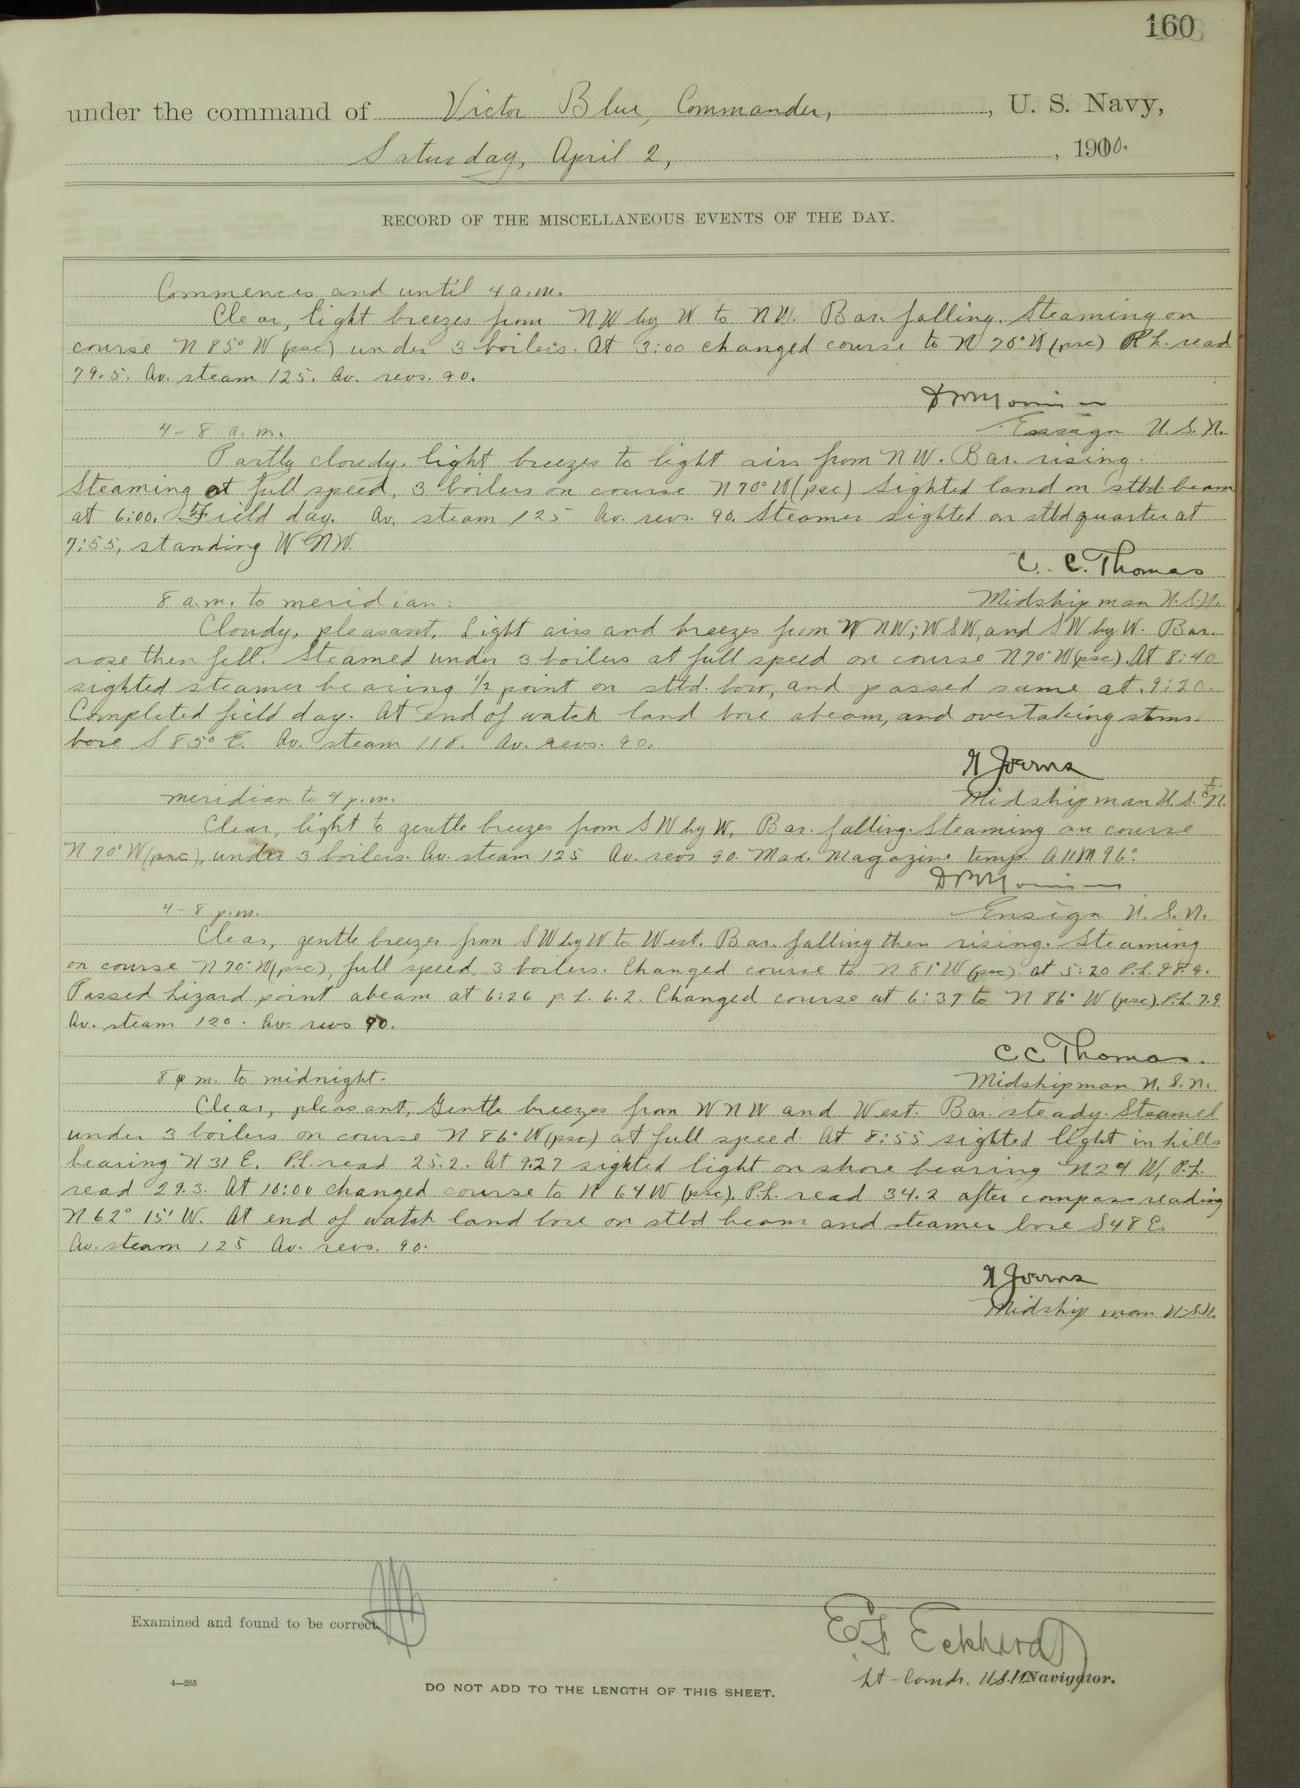 160
under the command of Victor Blue, Commander, , U. S. Navy,
Saturday, April 2, , 1910.
RECORD OF THE MISCELLANEOUS EVENTS OF THE DAY.
Commences and until 4 a.m.
Clear, light breezes from NW by W to NW. Bar. falling. Steaming on
course N 85° W (psc) under 3 boilers. At 3:00 changed course to N 70° W (psc) P.L. read
79.5. Av. steam 125. Av. revs. 90.
Ensign U.S.N.
4-8 a.m.
Partly cloudy, light breezes to light airs from NW. Bar. rising.
Steaming at full speed, 3 boilers on course N 70° W (psc) Sighted land on stbd beam
at 6:00. Field day. Av. steam 125 Av. revs. 90. Steamer sighted on stbd quarter at
7:55, standing WNW.
C. C. Thomas
Midshipman U.S.N.
8 a.m. to meridian:
Cloudy, pleasant. Light airs and breezes from WNW; WSW, and SW by W. Bar.
rose then fell. Steamed under 3 boilers at full speed on course N 70° W (psc). At 8:40
sighted steamer bearing 1/2 point on stbd. bow, and passed same at 9:20.
Completed field day. At end of watch land bore abeam, and overtaking stmr.
bore S 85° E. Av. steam 118. Av. revs. 90.
Joerns
Midshipman U.S.N.
meridian to 4 p.m.
Clear, light to gentle breezes from SW by W, Bar. falling. Steaming on course
N 70° W (psc), under 3 boilers. Av. steam 125 Av. revs 90. Max. Magazine temp. 96°
Ensign U.S.N.
4-8 p.m.
Clear, gentle breezes from SW by W to West. Bar. falling then rising. Steaming
on course N 70° W (psc), full speed, 3 boilers. Changed course to N 81° W (psc) at 5:20 P.L.
Passed Lizard point abeam at 6:26 p.l. 6.2. Changed course at 6:37 to N 86° W (psc). P.L. 7.9.
Av. steam 120. Av. revs 90.
C C Thomas.
Midshipman U.S.N.
8 p m. to midnight.
Clear, pleasant, Gentle breezes from WNW and West. Bar. steady. Steamed
under 3 boilers on course N 86° W (psc) at full speed. At 8:55 sighted light in hills
bearing N 31 E. P.L. read 25.2. At 9:27 sighted light on shore bearing N 24 W, P.L.
read 29.3. At 10:00 changed course to N 64 W (psc). P.L. read 34.2 after compass reading
N 62° 15' W. At end of watch land bore on stbd beam and steamer bore S 48 E.
Av. steam 125 Av. revs. 90.
Joerns
Midshipman U.S.N.
Examined and found to be correct.
Lt-Comdr. U.S.N. Navigator.
4—265
DO NOT ADD TO THE LENGTH OF THIS SHEET.